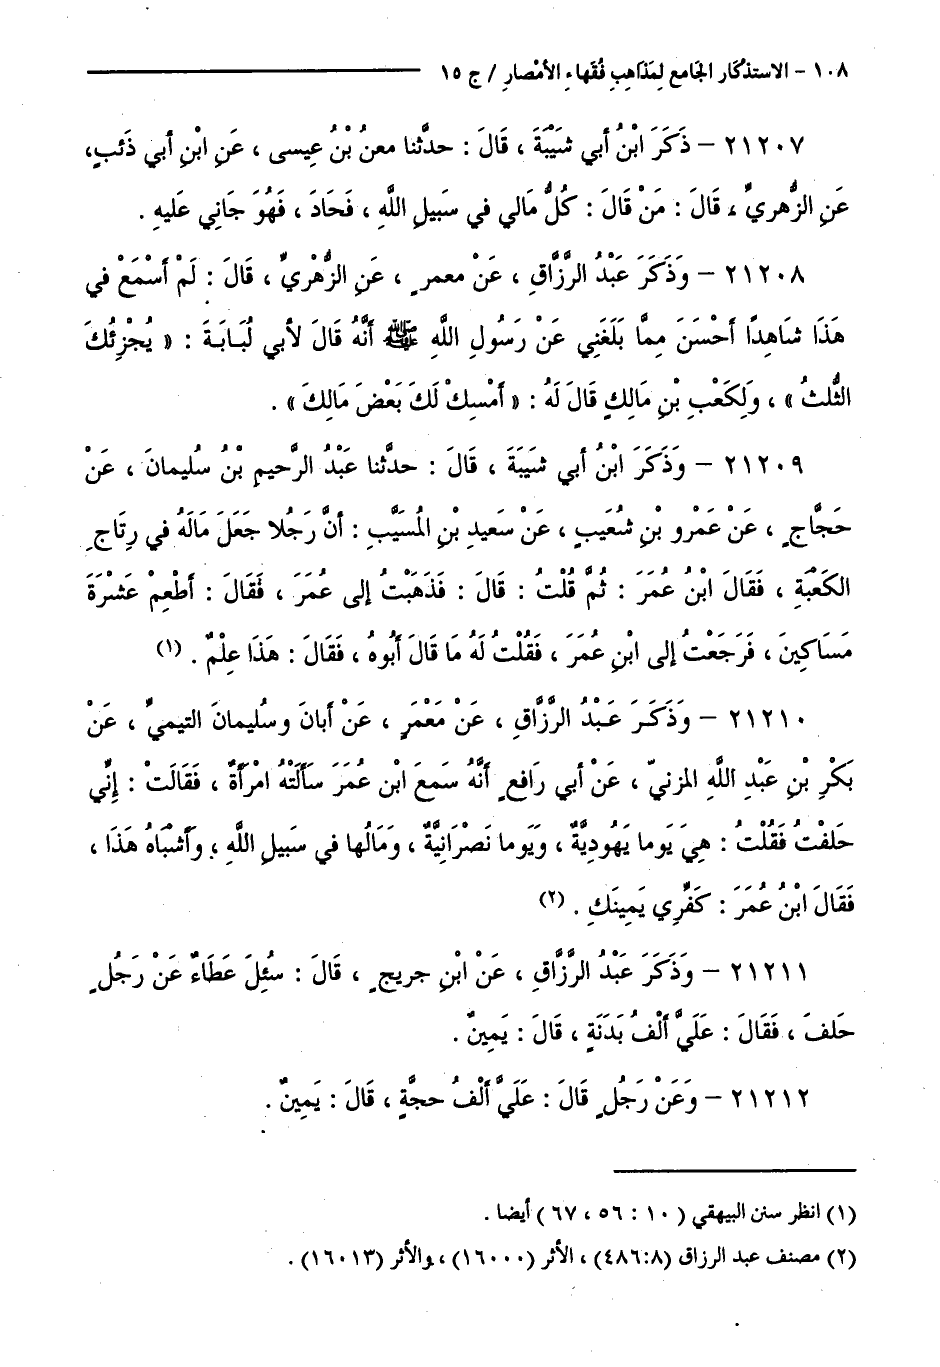 ١٠٨ - الاستذكار الجامع لِمَذَاهِبِ فُقَهاءِ الأمْصارِ / ج ١٥
٢١٢٠٧ - ذَكَرَ ابْنُ أبي شَيْبَةَ ، قَالَ : حدَّثنا معنُ بْنُ عِيسى ، عَنِ ابْنِ أبي ذَئبٍ،
عَنِ الزُّهريِّ ، قَالَ : مَنْ قَالَ : كُلُّ مَالي في سَبِيلِ اللَّهِ ، فَحَادَ ، فَهُوَ جَانِي عَليهِ .
٢١٢٠٨ - وَذَكَرَ عَبْدُ الرَّزَّاقِ ، عَنْ معمرٍ ، عَنِ الزُّهْريِّ ، قَالَ : لَمْ أَسْمَعْ في
هَذَا شَاهِدًا أحْسَنَ مِمَّا بَلَغَنِي عَنْ رَسُولِ اللَّهِ ﷺ أَنَّهُ قَالَ لأبي لُبَابَةَ : « يُجْزِئُكَ
الثُّلثُ » ، وَلِكَعْبِ بْنِ مَالِكٍ قَالَ لَهُ : « أَمْسِكْ لَكَ بَعْضَ مَالِكَ » .
٢١٢٠٩ - وَذَكَرَ ابْنُ أبي شَيَبَةَ ، قَالَ : حدَّثنا عَبْدُ الرَّحيمِ بْنُ سُليمانَ ، عَنْ
حَجَّاجٍ ، عَنْ عَمْرِو بْنِ شُعَيبٍ ، عَنْ سَعيدِ بْنِ المُسَيَّبِ : أنَّ رَجُلا جَعَلَ مَالَهُ في رِتَاجِ
الكَعْبَةِ ، فَقَالَ ابْنُ عُمَرَ : ثُمَّ قُلْتُ : قَالَ : فَذَهَبْتُ إلى عُمَرَ ، فَقَالَ : أَطْعِمْ عَشْرَةَ
مَسَاكِينَ ، فَرَجَعْتُ إلى ابْنِ عُمَرَ ، فَقُلْتُ لَهُ مَا قَالَ أَبُوهُ ، فَقَالَ : هَذَا عِلْمٌ . (١)
٢١٢١٠ - وَذَكَرَ عَبْدُ الرَّزَّاقِ ، عَنْ مَعْمَرٍ ، عَنْ أبانَ وسُليمانَ التيميِّ ، عَنْ
بَكْرِ بْنِ عَبْدِ اللَّهِ المزنيّ ، عَنْ أبي رَافعٍ أنَّهُ سَمعَ ابْن عُمَرَ سَأَلَتْهُ امْرَأَةٌ ، فَقَالَتْ : إِنِّي
حَلفْتُ فَقُلْتُ : هِيَ يَوما يَهُودِيَّةٌ ، وَيَوما نَصْرَانِيَّةٌ ، وَمَالُها في سَبِيلِ اللَّهِ ، وَأَشْبَاهُ هَذَا ،
فَقَالَ ابْنُ عُمَرَ : كَفِّرِي يَمِينَكِ . (٢)
٢١٢١١ - وَذَكَرَ عَبْدُ الرَّزَّاقِ ، عَنْ ابْنِ جريجٍ ، قَالَ : سُئِلَ عَطَاءٌ عَنْ رَجُلٍ
حَلفَ ، فَقَالَ : عَلَيَّ أَلْفُ بَدَنَةٍ ، قَالَ : يَمِينٌ .
٢١٢١٢ - وَعَنْ رَجُلٍ قَالَ : عَلَيَّ أَلْفُ حجَّةٍ ، قَالَ : يَمِينٌ .
(١) انظر سنن البيهقي ( ١٠ : ٥٦ ، ٦٧ ) أيضا .
(٢) مصنف عبد الرزاق (٤٨٦:٨) ، الأثر (١٦٠٠٠) ، والأثر (١٦٠١٣) .